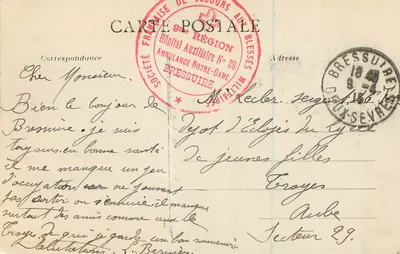 CARTE POSTALE
SOCIÉTÉ FRANÇAISE DE SECOURS AUX BLESSÉS MILITAIRES
9e RÉGION
Hôpital Auxiliaire No
AMBULANCE NOTRE-DAME
BRESSUIRE
Correspondance
Adresse
BRESSUIRE
DEUX-SÈVRES
Cher Monsieur
Bien le bonjour de
Bressuire. je suis
toujours en bonne santé
il me manque un peu
d'occupation ne pouvant
pas sortir on s'ennuie il manque
surtout des amis comme eux de
Troyes de qui je garde un bon souvenir
Salutations
sergent
Depot d'Eloyés du Lycée
de jeunes filles
Troyes
Aube
Secteur 29.